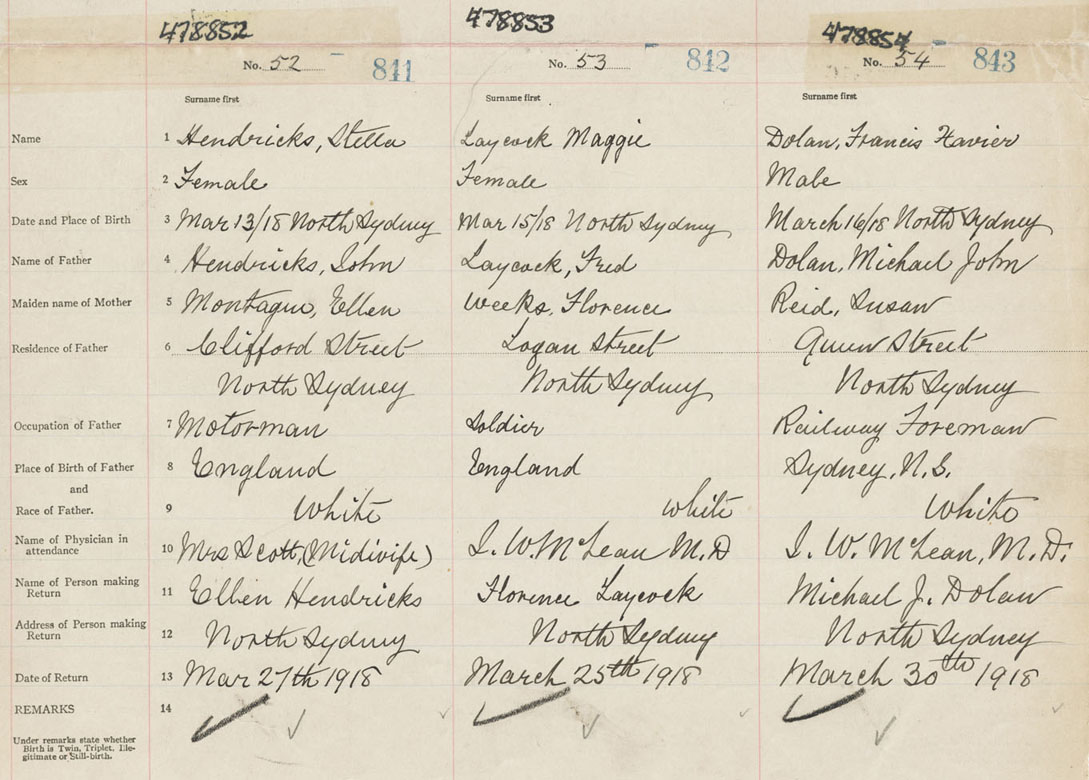 478852 478853 478854
No. 52 841 No. 53 842 No. 54 843
Surname first Surname first Surname first
Name 1 Hendricks, Stella Laycock Maggie Dolan, Francis Xavier
Sex 2 Female Female Male
Date and Place of Birth 3 Mar 13/18 North Sydney Mar 15/18 North Sydney March 16/18 North Sydney
Name of Father 4 Hendricks, John Laycock, Fred Dolan, Michael John
Maiden name of Mother 5 Montague, Ellen Weeks, Florence Reid, Susan
Residence of Father 6 Clifford Street Logan Street Queen Street
North Sydney North Sydney North Sydney
Occupation of Father 7 Motorman Soldier Railway Foreman
Place of Birth of Father 8 England England Sydney, N.S.
and
Race of Father. 9 White White White
Name of Physician in attendance 10 Mrs Scott, (Midivife) J. W. McLean M.D J. W. McLean, M.D.
Name of Person making Return 11 Ellen Hendricks Florence Laycock Michael J. Dolan
Address of Person making Return 12 North Sydney North Sydney North Sydney
Date of Return 13 Mar 27th 1918 March 25th 1918 March 30th 1918
REMARKS 14
Under remarks state whether
Birth is Twin, Triplet, Ille-
gitimate or Still-birth.